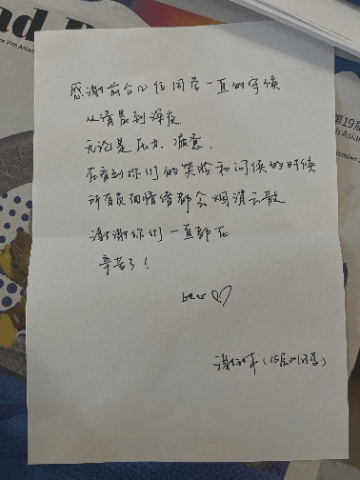 感谢前台各位同学一直的守候
从清晨到深夜
无论是压力、疲惫、
在看到你们的笑脸和问候的时候
所有负面情绪都会烟消云散
谢谢你们一直都在
辛苦了！
best ♡
第19届